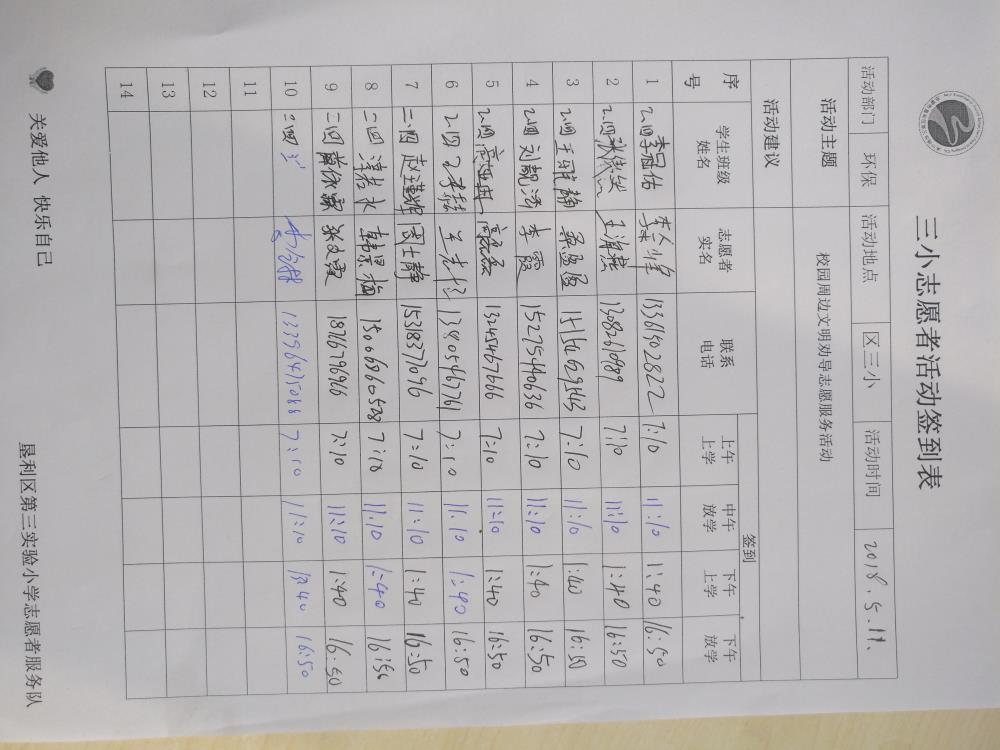 三小志愿者活动签到表
活动部门 环保 活动地点 区三小 活动时间 2018.5.11.
活动主题 校园周边文明劝导志愿服务活动
活动建议
序号 学生班级姓名 志愿者实名 联系电话 签到
上午上学 中午放学 下午上学 下午放学
1 二.四 李冠佑 13361502822 7:10 11:10 1:40 16:50
2 二.四 王海燕 13082610989 7:10 11:10 1:40 16:50
3 二.四 王雅静 7:10 11:10 1:40 16:50
4 二.四 刘靓洁 李霞 15275440636 7:10 11:10 1:40 16:50
5 二.四 高磊磊 13245467666 7:10 11:10 1:40 16:50
6 二.四 13805467761 7:10 11:10 1:40 16:50
7 二.四 周士静 15318377096 7:10 11:10 1:40 16:50
8 二.四 韩景梅 15066860528 7:10 11:10 1:40 16:50
9 二.四 张文霞 18767196966 7:10 11:10 1:40 16:50
10 二.四 13396475088 7:10 11:10 1:40 16:50
11
12
13
14
关爱他人 快乐自己 垦利区第三实验小学志愿者服务队